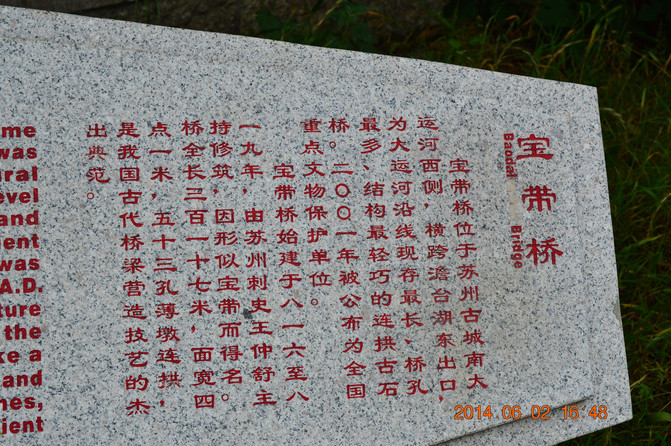 宝带桥
Baodai Bridge
宝带桥位于苏州古城南大
运河西侧，横跨澹台湖东出口，
为大运河沿线现存最长、桥孔
最多、结构最轻巧的连拱古石
桥。二〇〇一年被公布为全国
重点文物保护单位。
宝带桥始建于八一六至八
一九年，由苏州刺史王仲舒主
持修筑，因形似宝带而得名。
桥全长三百一十七米，面宽四
点一米，五十三孔薄墩连拱，
是我国古代桥梁营造技艺的杰
出典范。
was
and
was
A.D.
the
and
2014.06.02 16:48